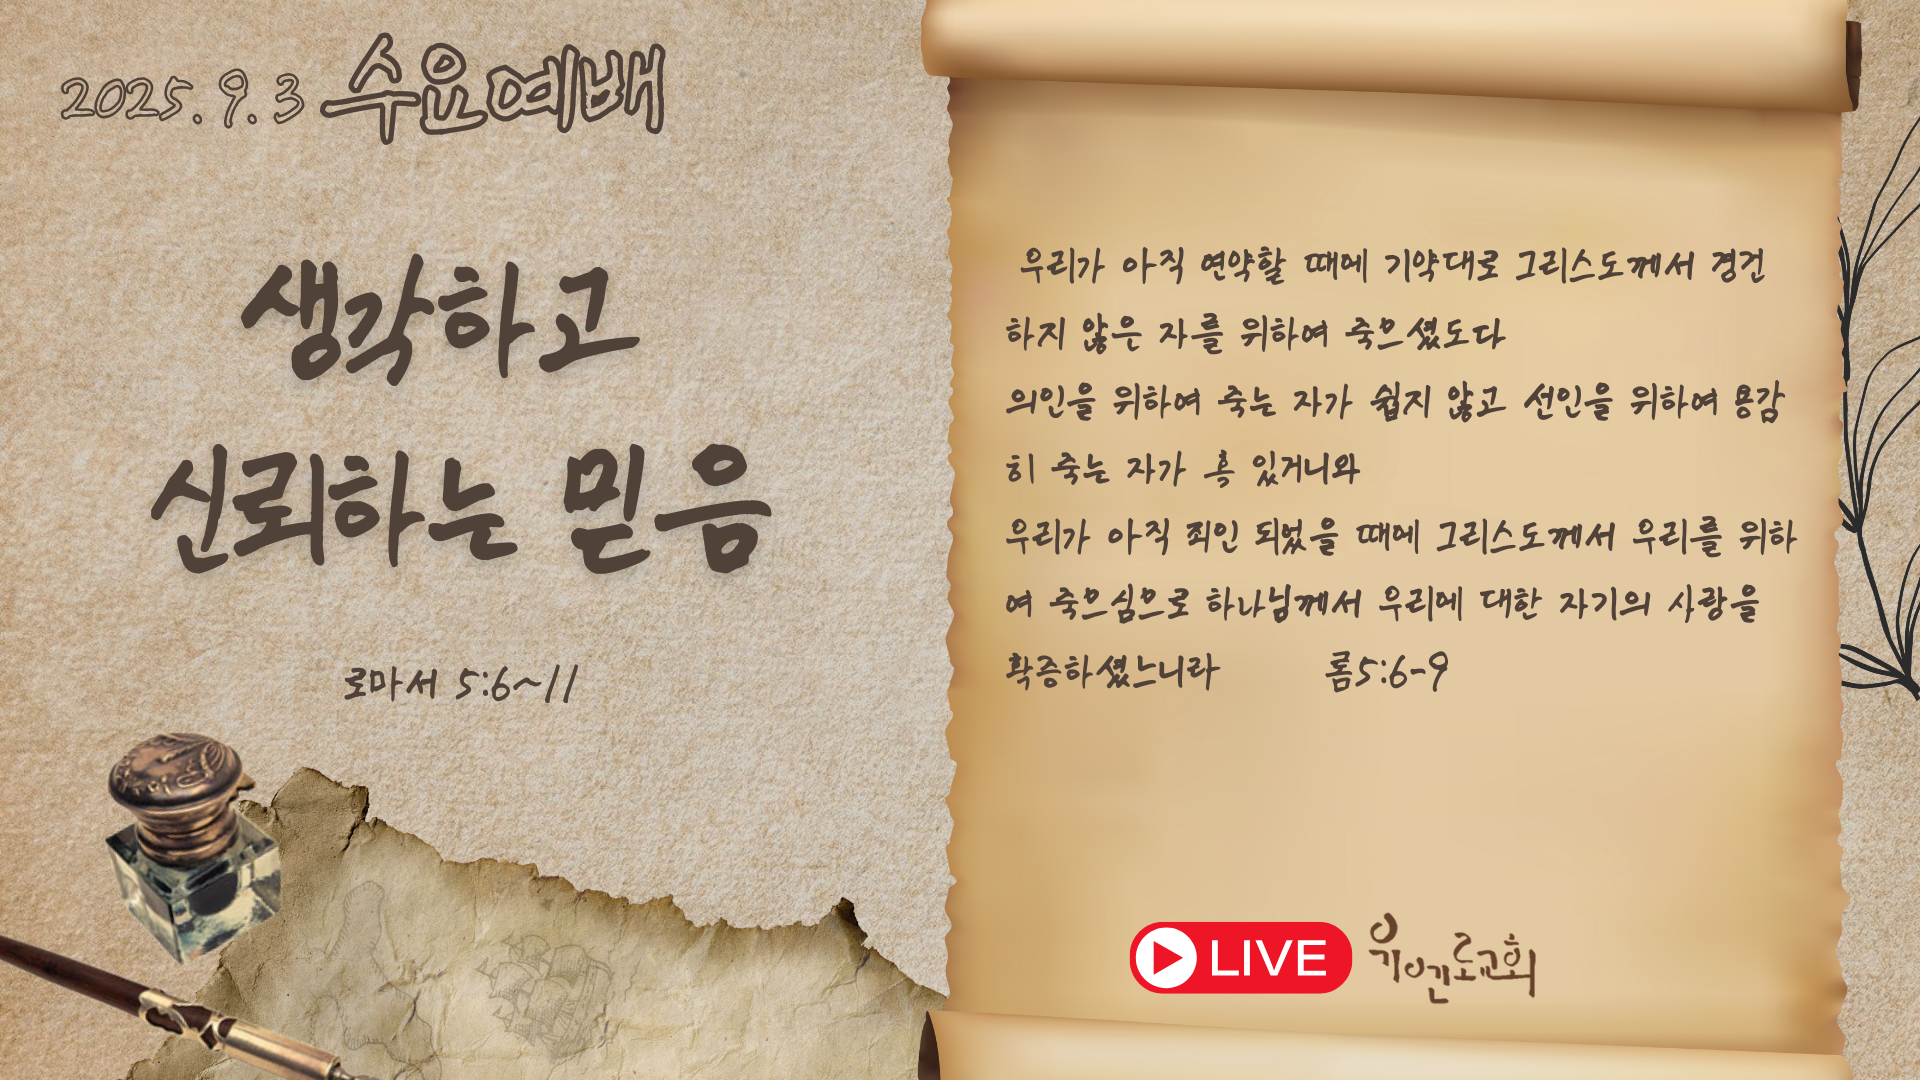 2025. 9. 3 수요예배
생각하고
신뢰하는 믿음
로마서 5:6~11
우리가 아직 연약할 때에 기약대로 그리스도께서 경건
하지 않은 자를 위하여 죽으셨도다
의인을 위하여 죽는 자가 쉽지 않고 선인을 위하여 용감
히 죽는 자가 혹 있거니와
우리가 아직 죄인 되었을 때에 그리스도께서 우리를 위하
여 죽으심으로 하나님께서 우리에 대한 자기의 사랑을
확증하셨느니라 롬5:6-9
LIVE